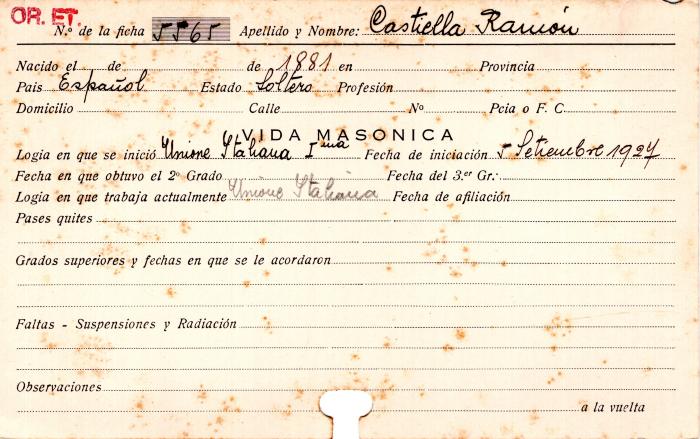 OR. ET.
N.º de la ficha 5565 Apellido y Nombre: Castiella Ramón
Nacido el de de 1881 en Provincia
Pais Español Estado Soltero Profesión
Domicilio Calle Nº Pcia o F. C.
VIDA MASONICA
Logia en que se inició Unione Italiana I ma Fecha de iniciación 5 Setiembre 1927
Fecha en que obtuvo el 2º Grado Fecha del 3.er Gr.:
Logia en que trabaja actualmente Unione Italiana Fecha de afiliación
Pases quites
Grados superiores y fechas en que se le acordaron
Faltas - Suspensiones y Radiación
Observaciones
a la vuelta